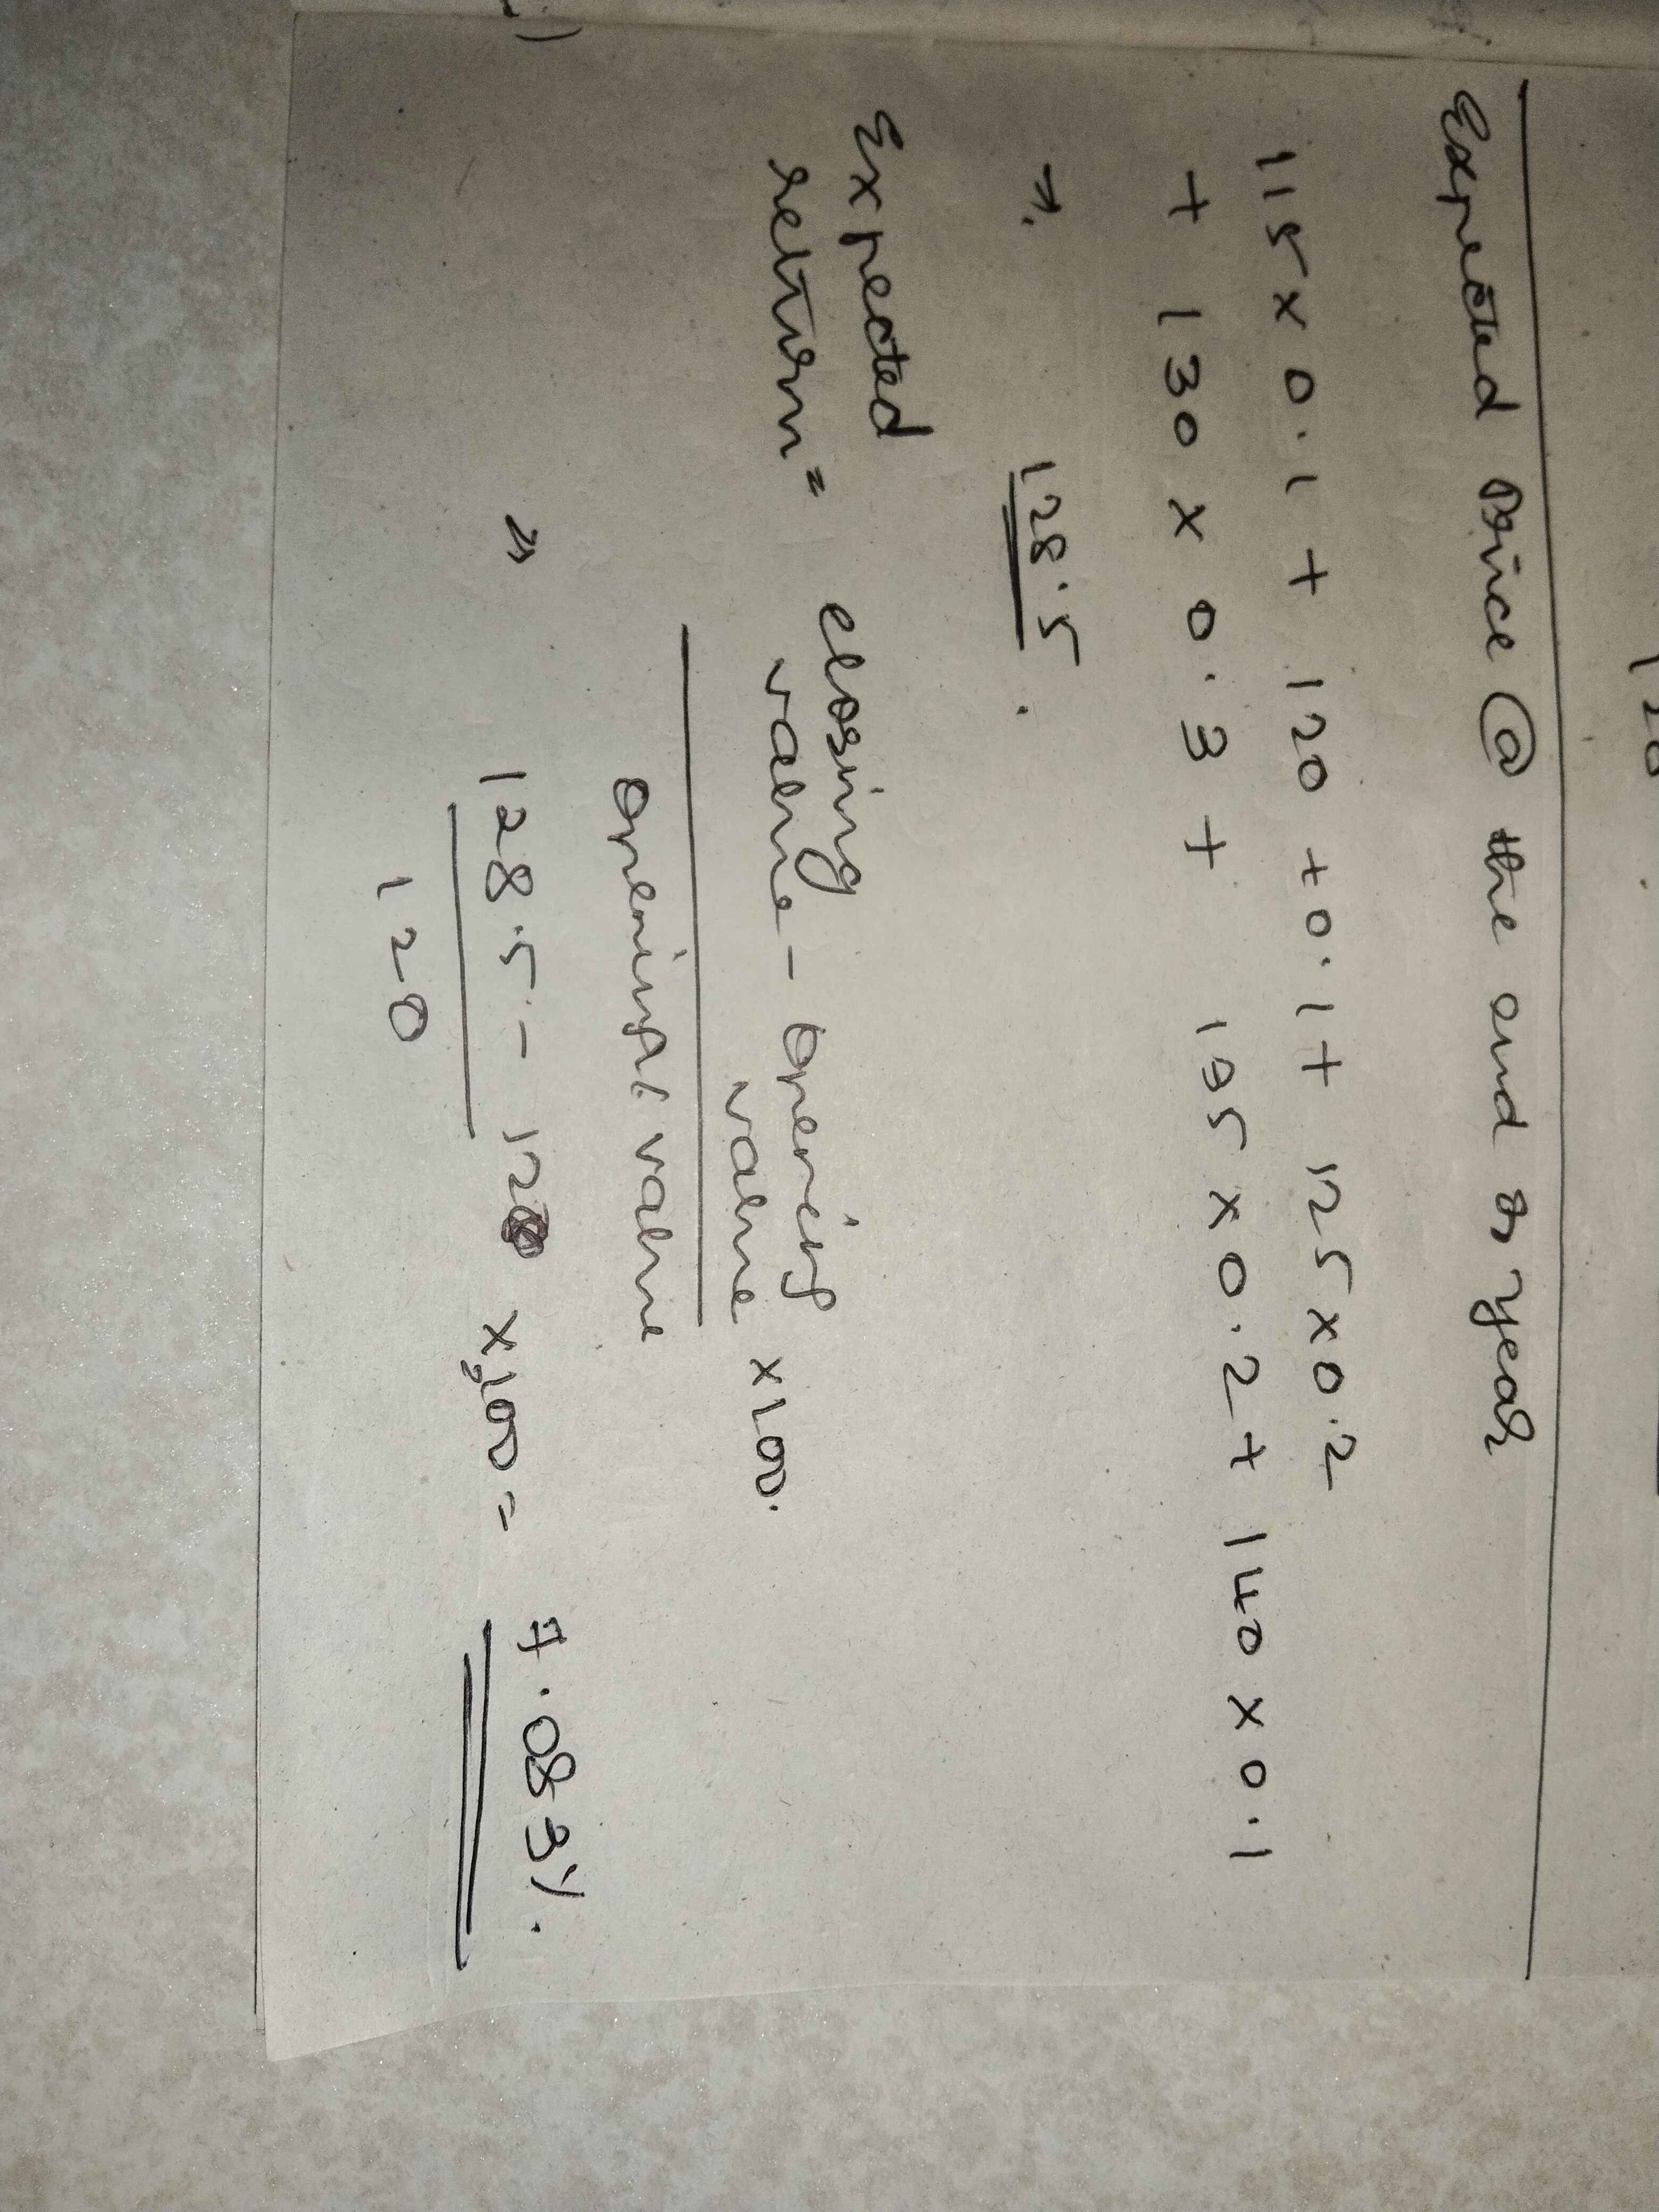 120
Expected Price @ the end or year
115 x 0.1 + 120 + 0.1 + 125 x 0.2
+ 130 x 0.3 + 135 x 0.2 + 140 x 0.1
⇒. 128.5.
Expected return = closing value - opening value x 100.
opening value
⇒ 128.5 - 120 x 100 = 7.083%.
120